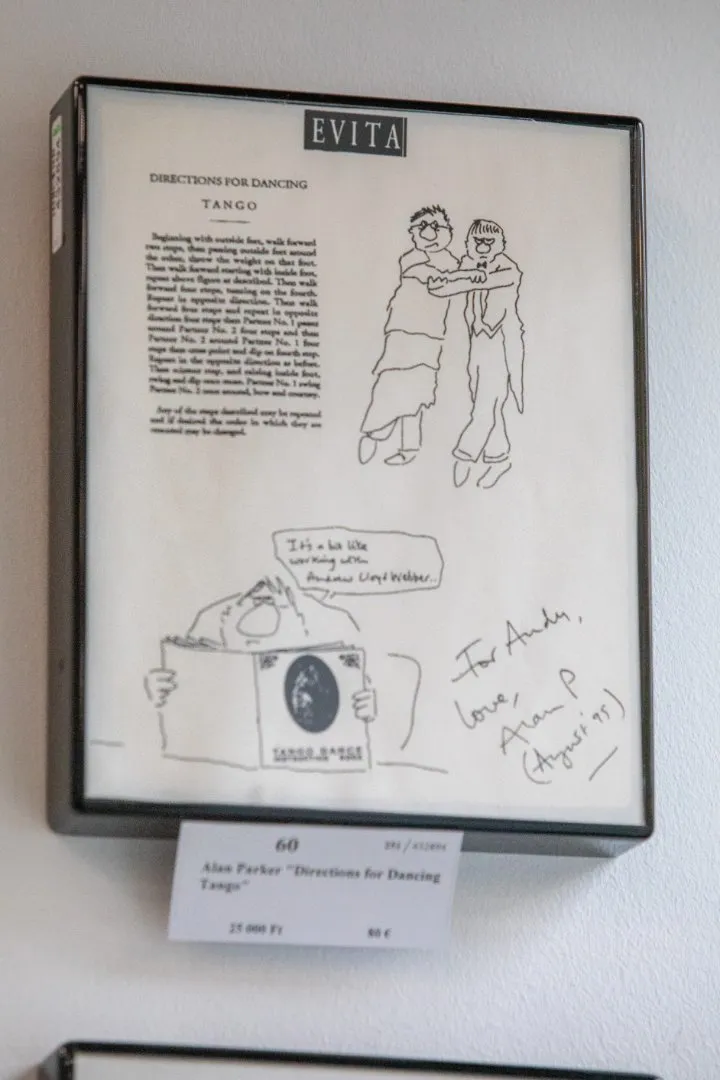 EVITA
DIRECTIONS FOR DANCING
TANGO
Beginning with outside feet, walk forward
two steps, then passing outside feet around
the other, throw the weight on that foot.
Then walk forward starting with inside foot,
repeat above figure as described. Then walk
forward four steps, turning on the fourth.
Repeat in opposite direction. Then walk
forward four steps and repeat in opposite
direction four steps then Partner No. 1 passes
around Partner No. 2 four steps and then
Partner No. 2 around Partner No. 1 four
steps then cross point and dip on fourth step.
Repeat in the opposite direction as before.
Then scissors step, and raising inside foot,
swing and dip once more. Partner No. 1 swing
Partner No. 2 once around, bow and courtesy.
Any of the steps described may be repeated
and if desired the order in which they are
executed may be changed.
It's a bit like
working with
Andrew Lloyd Webber..
TANGO DANCE
INSTRUCTION BOOK
For Andy,
love,
Alan P
(August '95)
60
Alan Parker "Directions for Dancing
Tango"
25 000 Ft 80 €